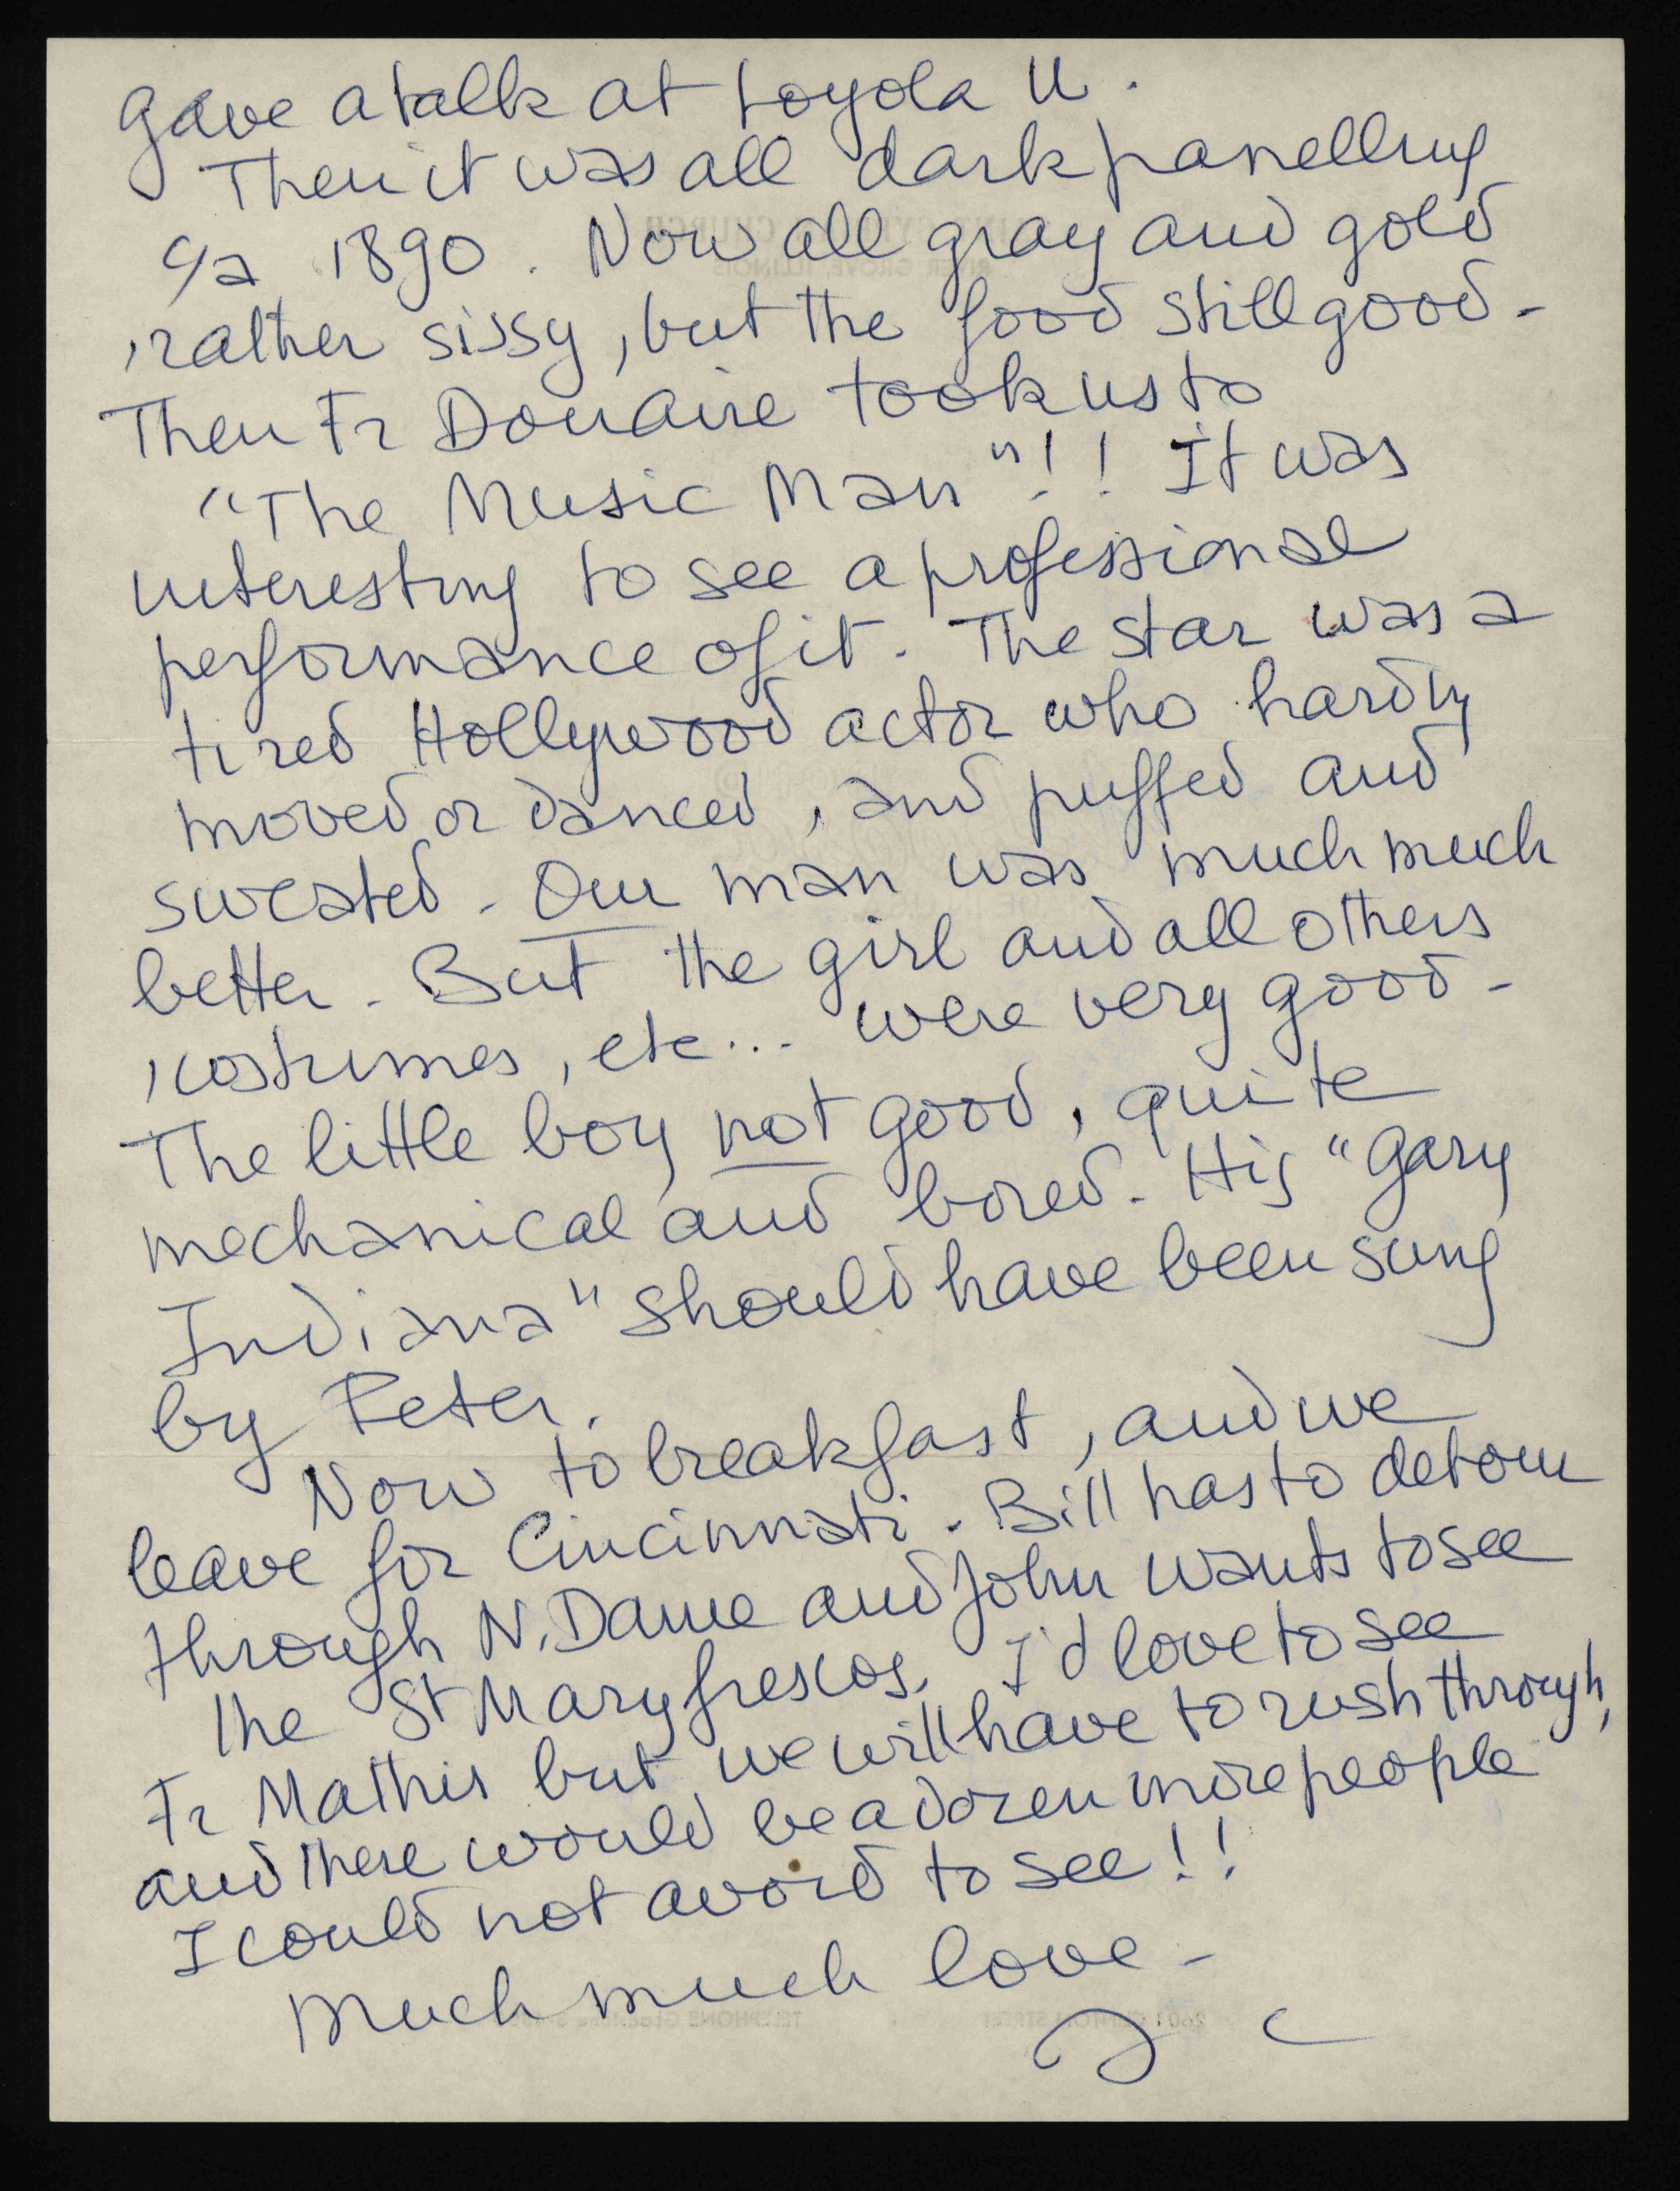 gave a talk at Loyola U.
Then it was all dark panelling
c/a 1890. Now all gray and gold
, rather sissy, but the food still good -
Then Fr Donaire took us to
"The Music Man"!! It was
interesting to see a professional
performance of it. The star was a
tired Hollywood actor who hardly
moved or danced, and puffed and
sweated - Our man was much much
better - But the girl and all others
, costumes, etc... were very good -
The little boy not good, quite
mechanical and bored. His "Gary
Indiana" should have been sung
by Peter.
Now to breakfast, and we
leave for Cincinnati - Bill has to detour
through N. Dame and John wants to see
the St Mary frescos. I'd love to see
Fr Mathis but we will have to rush through,
and there would be a dozen more people
I could not avoid to see!!
Much much love -